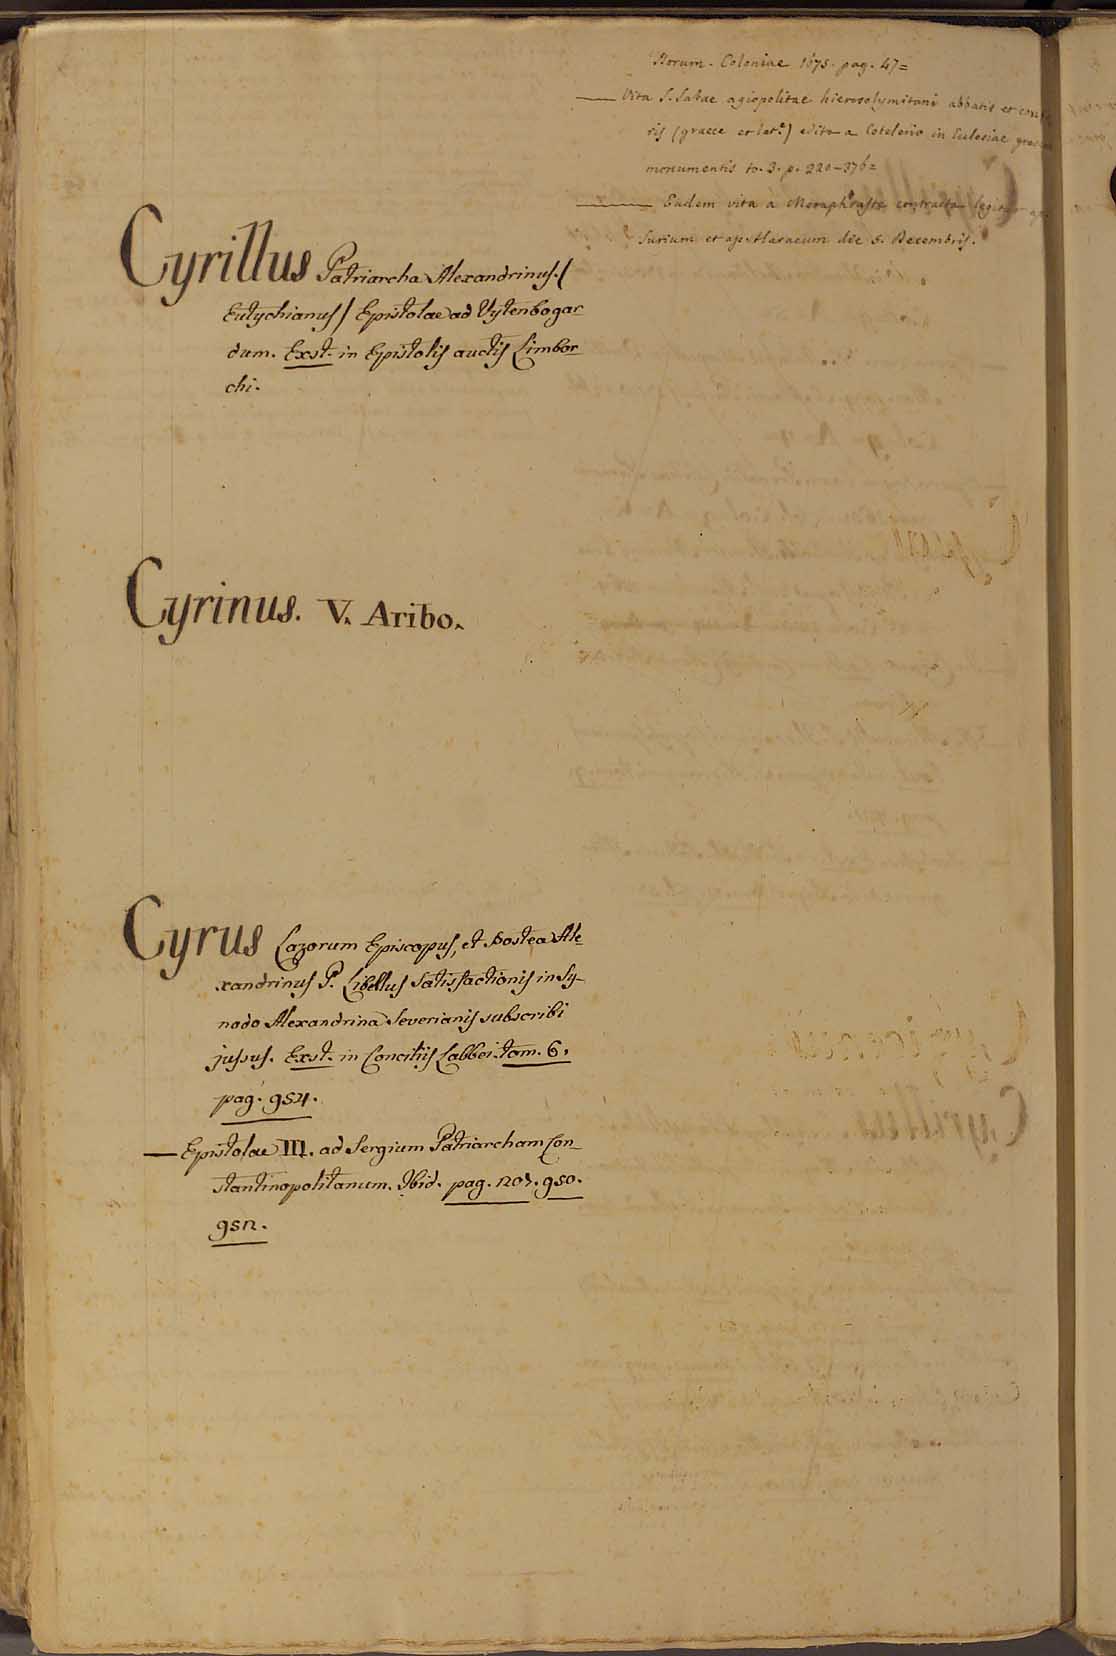 Norum. Coloniae 1675. pag. 47=
— Vita S. Sabae agiopolitae hierosolymitani abbatis et
ris (graece et lat.e) edita a Cotelerio in Eclesiae
monumentis to. 3. p. 220-376=
— Eadem vita a Metaphraste contracta legitur
Surium et ap. Haraeum die 5. Decembris.
Cyrillus Patriarcha Alexandrinus. (
Eutychianus) Epistolae ad Vytenbogar
dum. Exst. in Epistolis auctis Limbor
chi.
Cyrinus. V. Aribo.
Cyrus Lazorum Episcopus, et postea Ale-
xandrinus P. Libellus satisfactionis in Sy-
nodo Alexandrina Severianis subscribi
jussus. Exst. in Conciliis Labbei. tom. 6.
pag. 954.
— Epistolae III. ad Sergium Patriarcham Con-
stantinopolitanum. Ibid. pag. 950.
952.